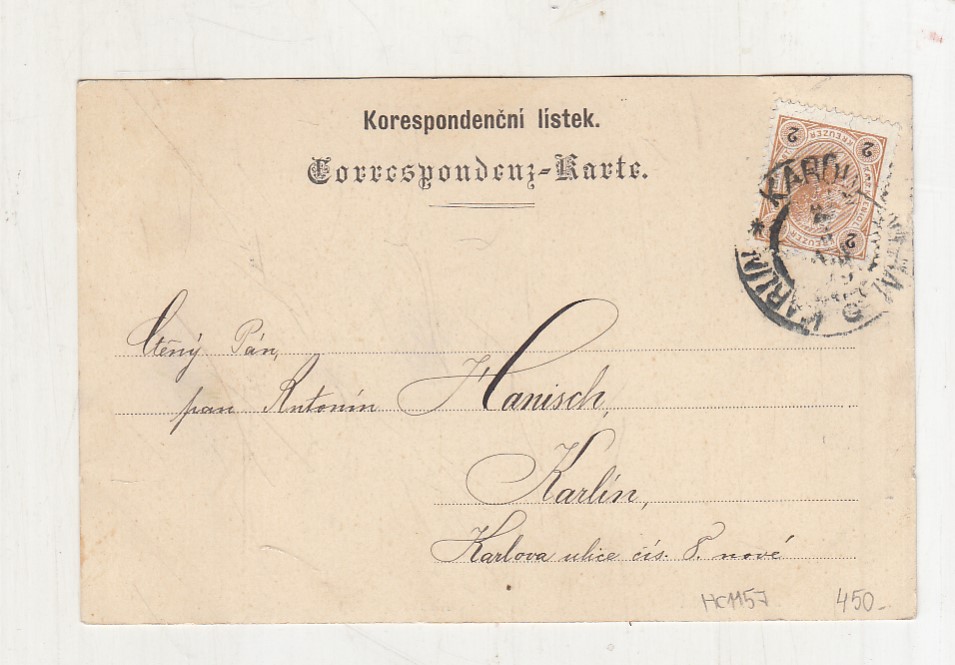 Korespondenční lístek.
Correspondenz-Karte.
2 KREUZER 2
KREUZER 2
KAROLI
KARLIN
Ctěný Pán,
pan Antonín Hanisch,
Karlín,
Karlova ulice čís. 8. nové
HC1157 450-